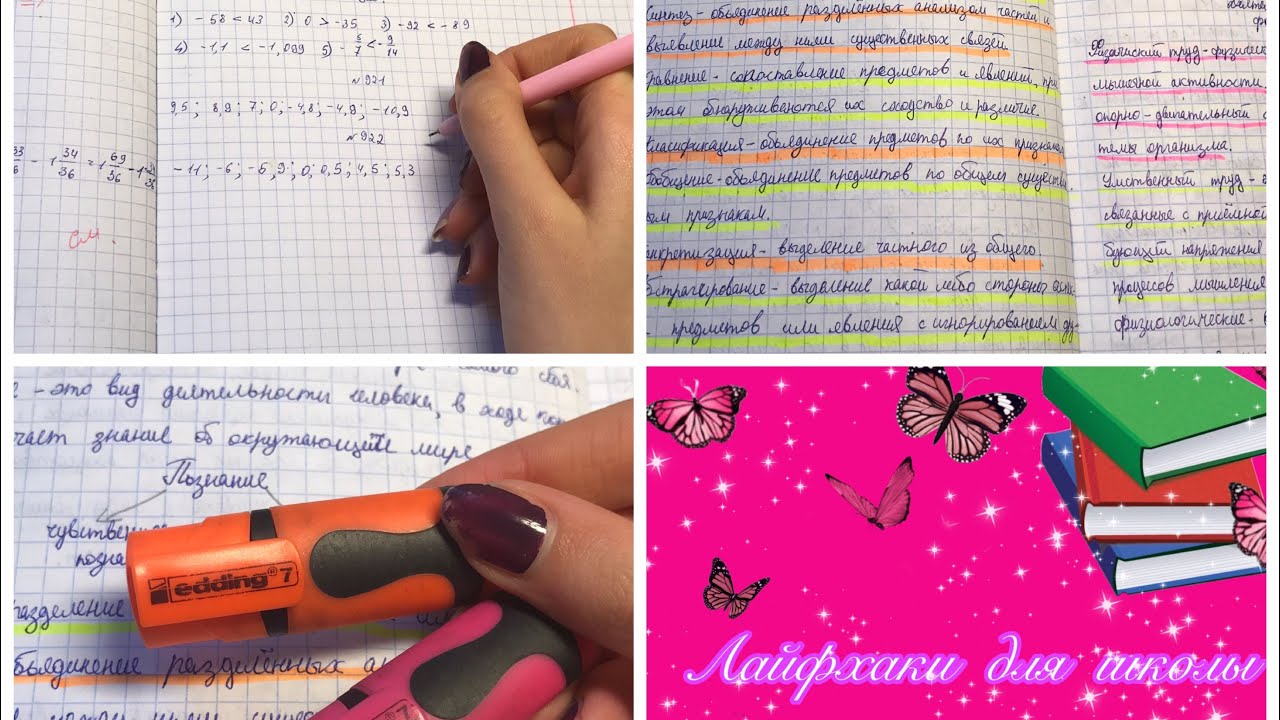 1) -58 < 43 2) 0 > -35 3) -92 < -89
4) -1,1 < -1,099 5) -6/7 < -9/14
№921
9,5; 8,9; 7; 0; -4,8; -4,9; -10,9
№922
-11; -6; -5,9; 0; 0,5; 4,5; 5,3
33/36 - 1 34/36 = 1 69/36 - 1
см.
Синтез - объединение разделённых анализом частей и
выявление между ними существенных связей.
равнение - сопоставление предметов и явлений, при
этом обнаруживаются их сходство и различие.
классификация - объединение предметов по их признакам
обобщение - объединение предметов по общем существ
ым признакам.
онкретизация - выделение частного из общего.
бстрагирование - выделение какой либо стороны
предметов или явления с игнорированием др
Физический труд - физическ
мышечной активности
опорно-двигательный
темы организма.
Умственный труд -
связанные с приёмной
бующий напряжения
процесов мышления
физиологические -
- это вид деятельности человека, в ходе
чает знание об окружающем мире
Познание
чувствен
позна
разделение
бъединение разделённых ан
edding 7
7
Лайфхаки для школы